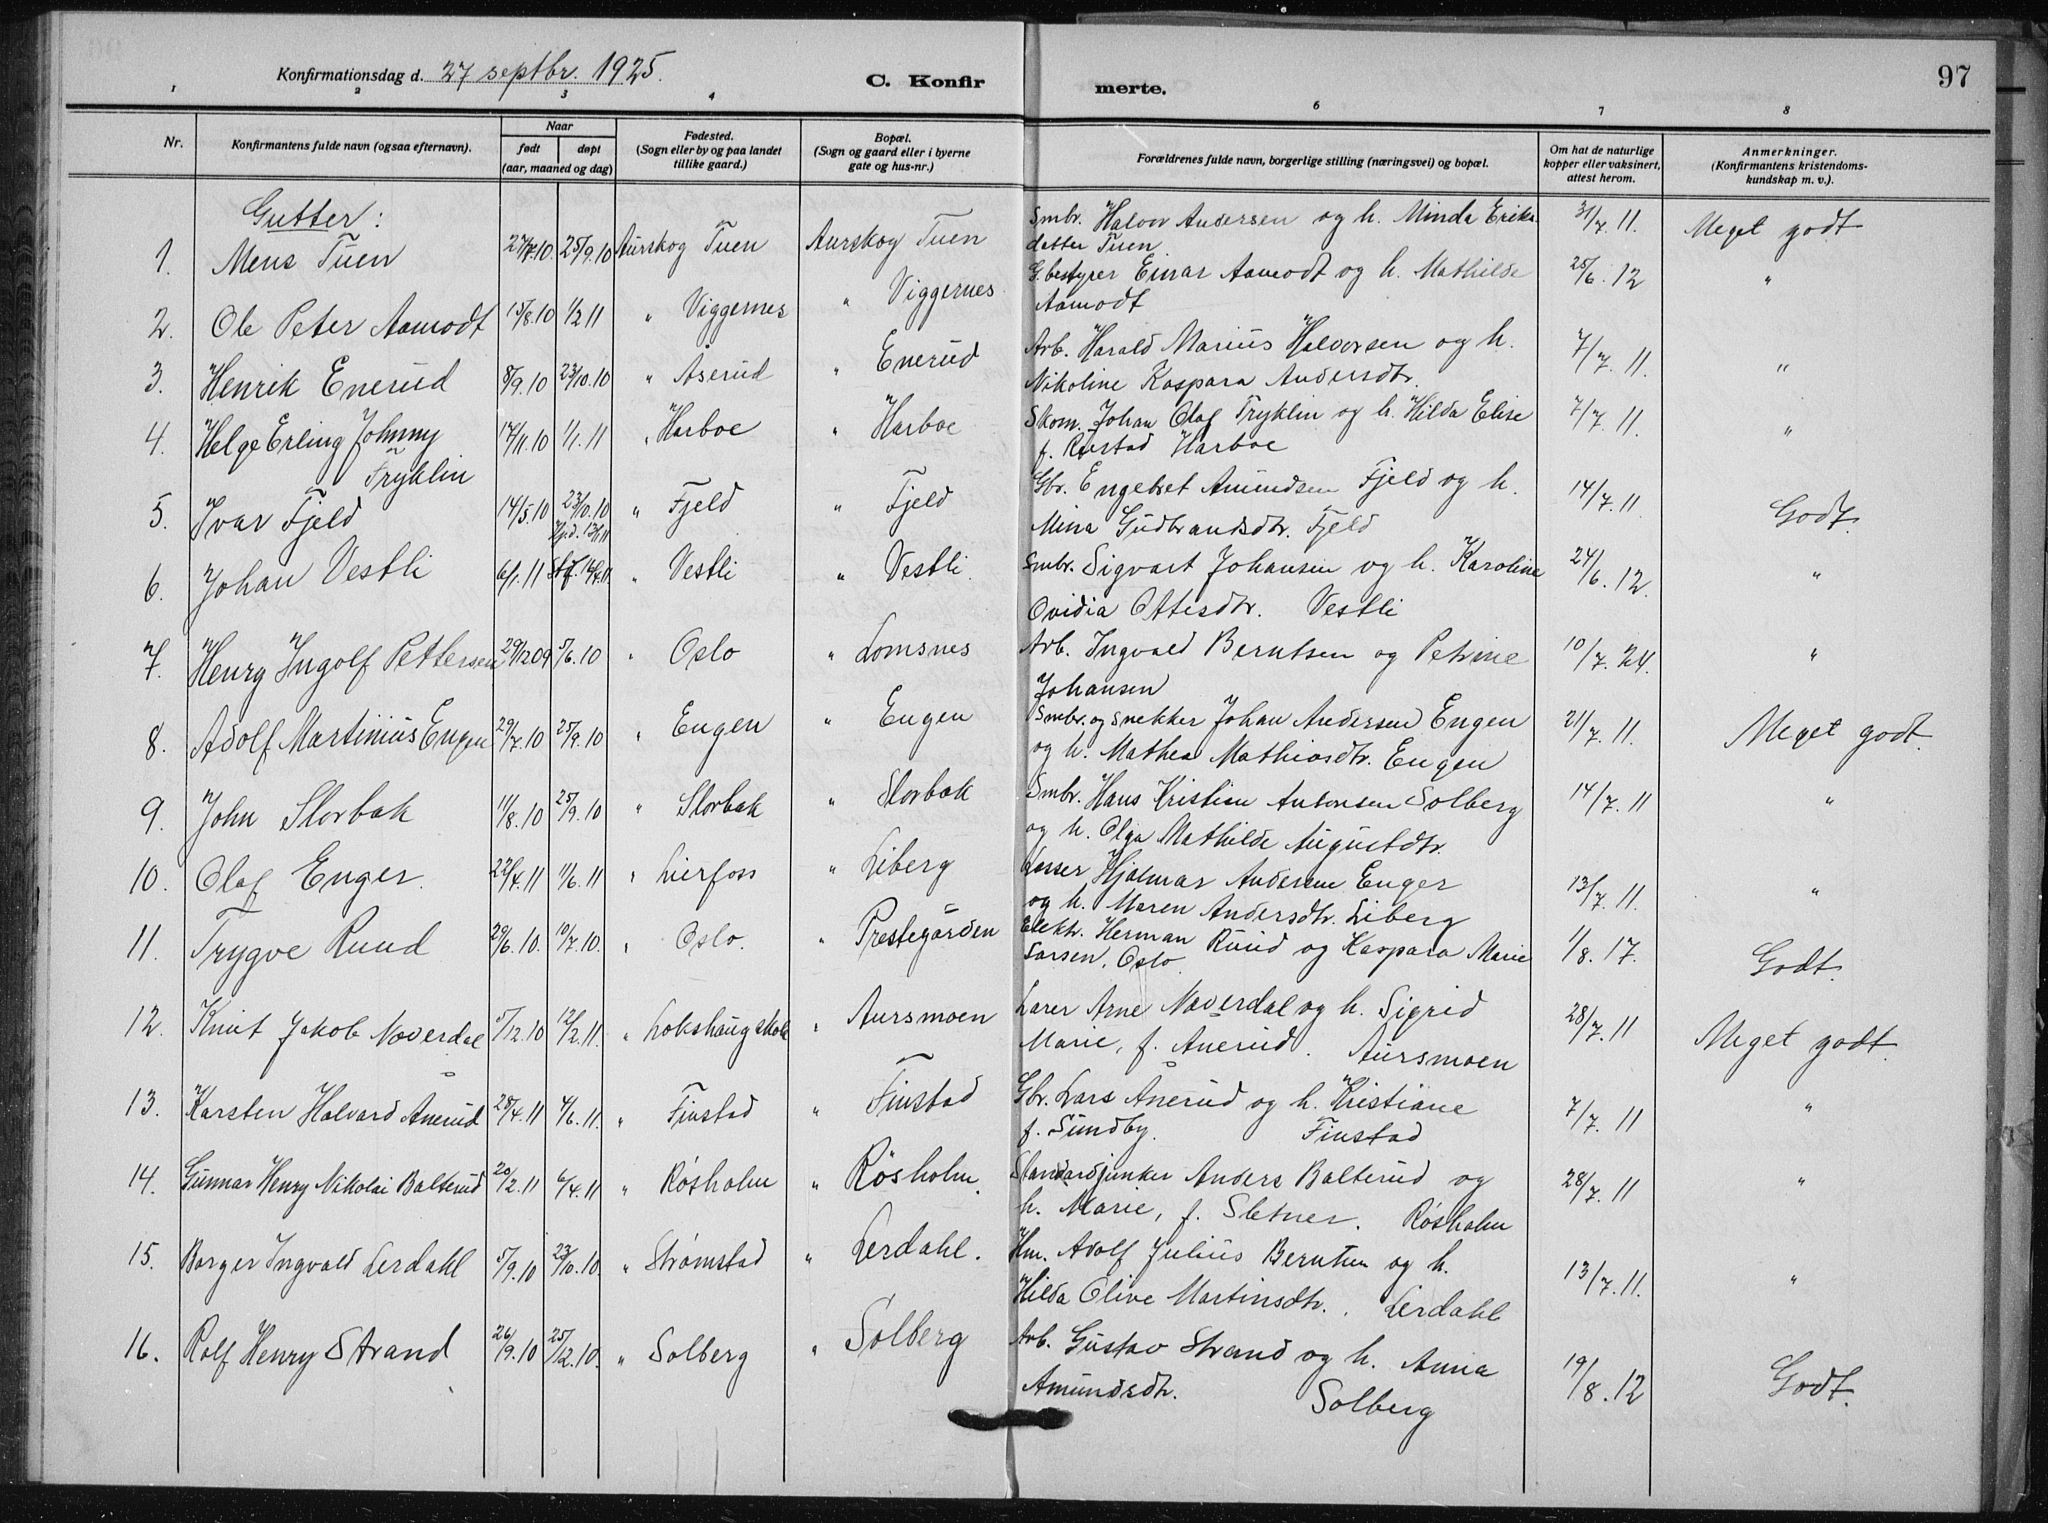 97
Konfirmationsdag d. 27 septbr. 1925.
C. Konfirmerte.
1 2 3 4 6 7 8
Nr. Konfirmantens fulde navn (ogsaa efternavn). Naar født døpt (aar, maaned og dag) Fødested. (Sogn eller by og paa landet tillike gaard.) Bopæl. (Sogn og gaard eller i byerne gate og hus-nr.) Forældrenes fulde navn, borgerlige stilling (næringsvei) og bopæl. Om hat de naturlige kopper eller vaksinert, attest herom. Anmerkninger. (Konfirmantens kristendomskundskap m. v.).
Gutter:
1. Mens Tuen 27/7.10 25/9.10 Aurskog Tuen Aurskog Tuen Smbr. Halvor Andersen og h. Minda Erika 31/7.11. Meget godt
datter Tuen
2. Ole Peter Aamodt 15/8.10 1/2.11 " Viggernes " Viggernes Gbestyrer Einar Aamodt og h. Mathilde 25/6.12 "
Aamodt
3. Henrik Enerud 8/9.10 23/10.10 " Åserud " Enerud Arb. Harald Marius Halvorsen og h. 7/7.11. "
Nikoline Kaspara Andersdtr.
4. Helge Erling Johnny 17/11.10 1/1.11 " Harboe " Harboe Skom. Johan Olaf Tryklin og h. Hilda Elise 7/7.11. "
Tryklin f. Rustad Harboe
5. Ivar Fjeld 14/5.10 23/10.10 " Fjeld " Fjeld Gbr. Engebret Amundsen Fjeld og h. 14/7.11. Godt.
Mina Gudbrandsdtr. Fjeld
6. Johan Vestli 6/1.11 Hjd. 13/1 11 Stf. 16/7.11 " Vestli " Vestli Smbr. Sigvart Johansen og h. Karoline 24/6.12. "
Ovidia Ottisdtr. Vestli
7. Henry Ingolf Pettersen 29/12 09 5/6.10 " Oslo " Lomsnes Arb. Ingvald Berntsen og Petrine 10/7.24. "
Johansen
8. Adolf Martinius Engen 29/7.10 25/9.10 " Engen " Engen Smbr. og snekker Johan Andersen Engen 21/7.11. Meget godt.
og h. Mathea Mathiasdtr. Engen
9. John Slorbak 11/8.10 25/9.10 " Slorbak " Slorbak Smbr. Hans Kristian Antonsen Solberg 14/7.11 "
og h. Olga Mathilde Augustdtr.
10. Olaf Enger. 22/4.11 11/6.11 " Lierfoss " Liberg Losser Hjalmar Andersen Enger 13/7.11. "
og h. Maren Andersdtr. Liberg
11. Trygve Ruud 29/6.10. 10/7.10. " Oslo. " Prestegården Elektr. Herman Ruud og Kaspara Marie 1/8.17. Godt.
Larsen, Oslo.
12. Knut Jakob Noverdal 5/12.10 12/2.11. " Lokshaug skole " Aursmoen Lærer Arne Noverdal og h. Sigrid 28/7.11 Meget godt.
Marie, f. Anerud. Aursmoen
13. Karsten Halvard Ånerud 28/4.11 4/6.11. " Finstad " Finstad Gbr. Lars Ånerud og h. Kristiane 7/7.11 "
f. Sundby. Finstad
14. Gunnar Henry Nikolai Balterud 20/2.11 6/4.11 " Røsholm " Røsholm. Standardjunker Anders Balterud og 28/7.11 "
h. Marie, f. Sletner. Røsholm
15. Borger Ingvald Lerdahl 5/9.10 23/10.10. " Strømstad " Lerdahl. Hm. Adolf Julius Berntsen og h. 13/7.11. "
Hilda Olive Martinsdtr. Lerdahl
16. Rolf Henry Strand 26/9.10 25/12.10. " Solberg " Solberg Arb. Gustav Strand og h. Anna 19/8.12 Godt.
Amundsdtr. Solberg